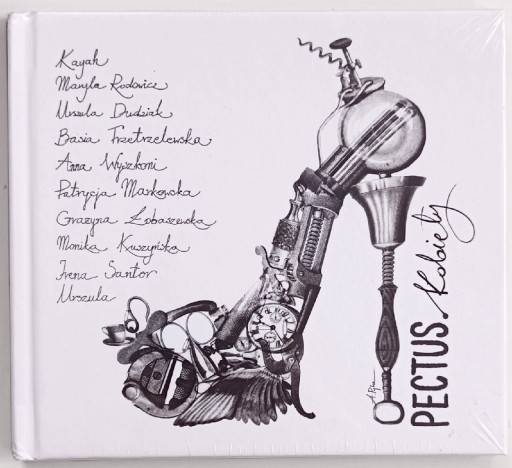 Kayah
Maryla Rodowicz
Urszula Dudziak
Basia Trzetrzelewska
Anna Wyszkoni
Patrycja Markowska
Grażyna Łobaszewska
Monika Kuszyńska
Irena Santor
Urszula
PECTUS. Kobiety